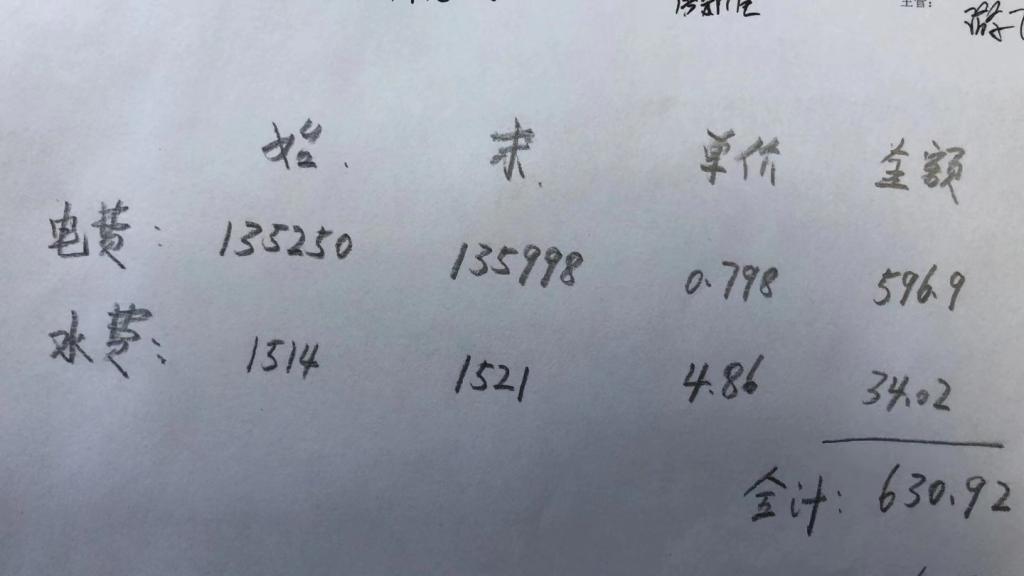 主管:
始. 末. 单价 金额
电费: 135250 135998 0.798 596.9
水费: 1514 1521 4.86 34.02
合计: 630.92